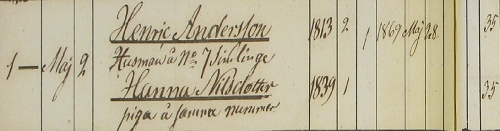 Henric Andersson 1813 2 1 1869 Maj 28. 35
1 — Maj 2 Husman å No 7
Hanna Nilsdotter 1839 1 35
piga å samma nummer